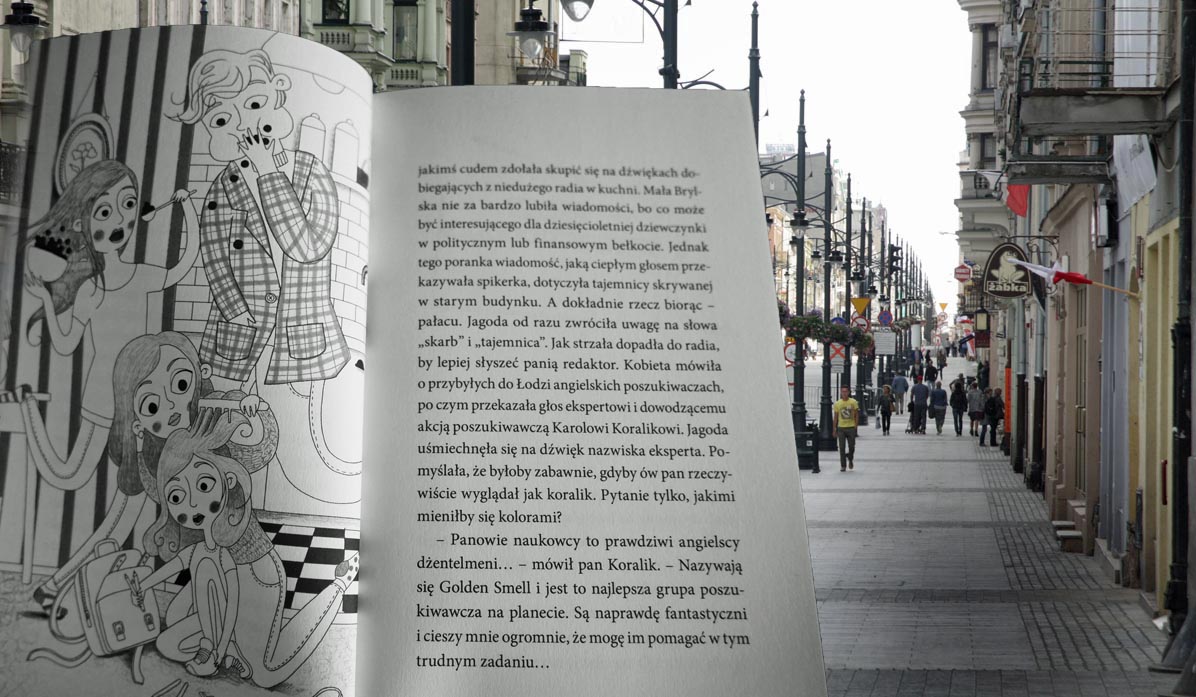 jakimś cudem zdołała skupić się na dźwiękach do-
biegających z niedużego radia w kuchni. Mała Bryl-
ska nie za bardzo lubiła wiadomości, bo co może
być interesującego dla dziesięcioletniej dziewczynki
w politycznym lub finansowym bełkocie. Jednak
tego poranka wiadomość, jaką ciepłym głosem prze-
kazywała spikerka, dotyczyła tajemnicy skrywanej
w starym budynku. A dokładnie rzecz biorąc –
pałacu. Jagoda od razu zwróciła uwagę na słowa
„skarb” i „tajemnica”. Jak strzała dopadła do radia,
by lepiej słyszeć panią redaktor. Kobieta mówiła
o przybyłych do Łodzi angielskich poszukiwaczach,
po czym przekazała głos ekspertowi i dowodzącemu
akcją poszukiwawczą Karolowi Koralikowi. Jagoda
uśmiechnęła się na dźwięk nazwiska eksperta. Po-
myślała, że byłoby zabawnie, gdyby ów pan rzeczy-
wiście wyglądał jak koralik. Pytanie tylko, jakimi
mieniłby się kolorami?
– Panowie naukowcy to prawdziwi angielscy
dżentelmeni… – mówił pan Koralik. – Nazywają
się Golden Smell i jest to najlepsza grupa poszu-
kiwawcza na planecie. Są naprawdę fantastyczni
i cieszy mnie ogromnie, że mogę im pomagać w tym
trudnym zadaniu…
żabka